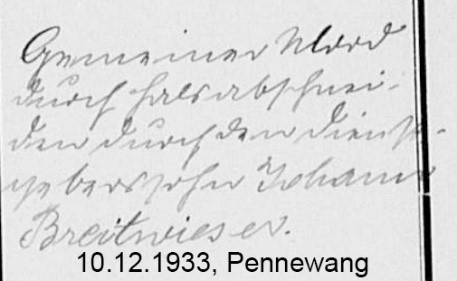 Gemeiner Mord
durch Halsabschnei-
den durch den Dienst-
geberssohn Johann
Breitwieser.
10.12.1933, Pennewang